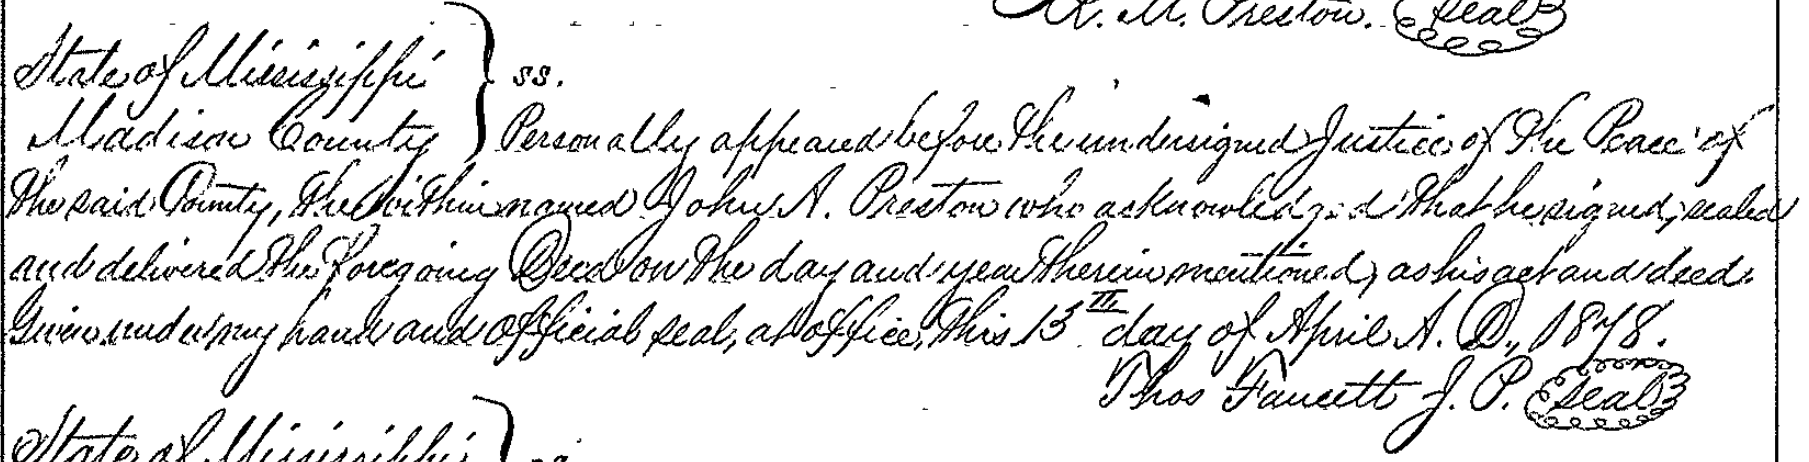 R. M. Preston. Seal
State of Mississippi } ss.
Madison County } Personally appeared before the undersigned Justice of the Peace of
the said County, the within named John A. Preston who acknowledged that he signed, sealed
and delivered the foregoing Deed on the day and year therein mentioned, as his act and deed.
Given under my hand and official seal, at office, this 13th day of April A. D., 1878.
Thos Faucett J. P. Seal
State of Mississippi } ss